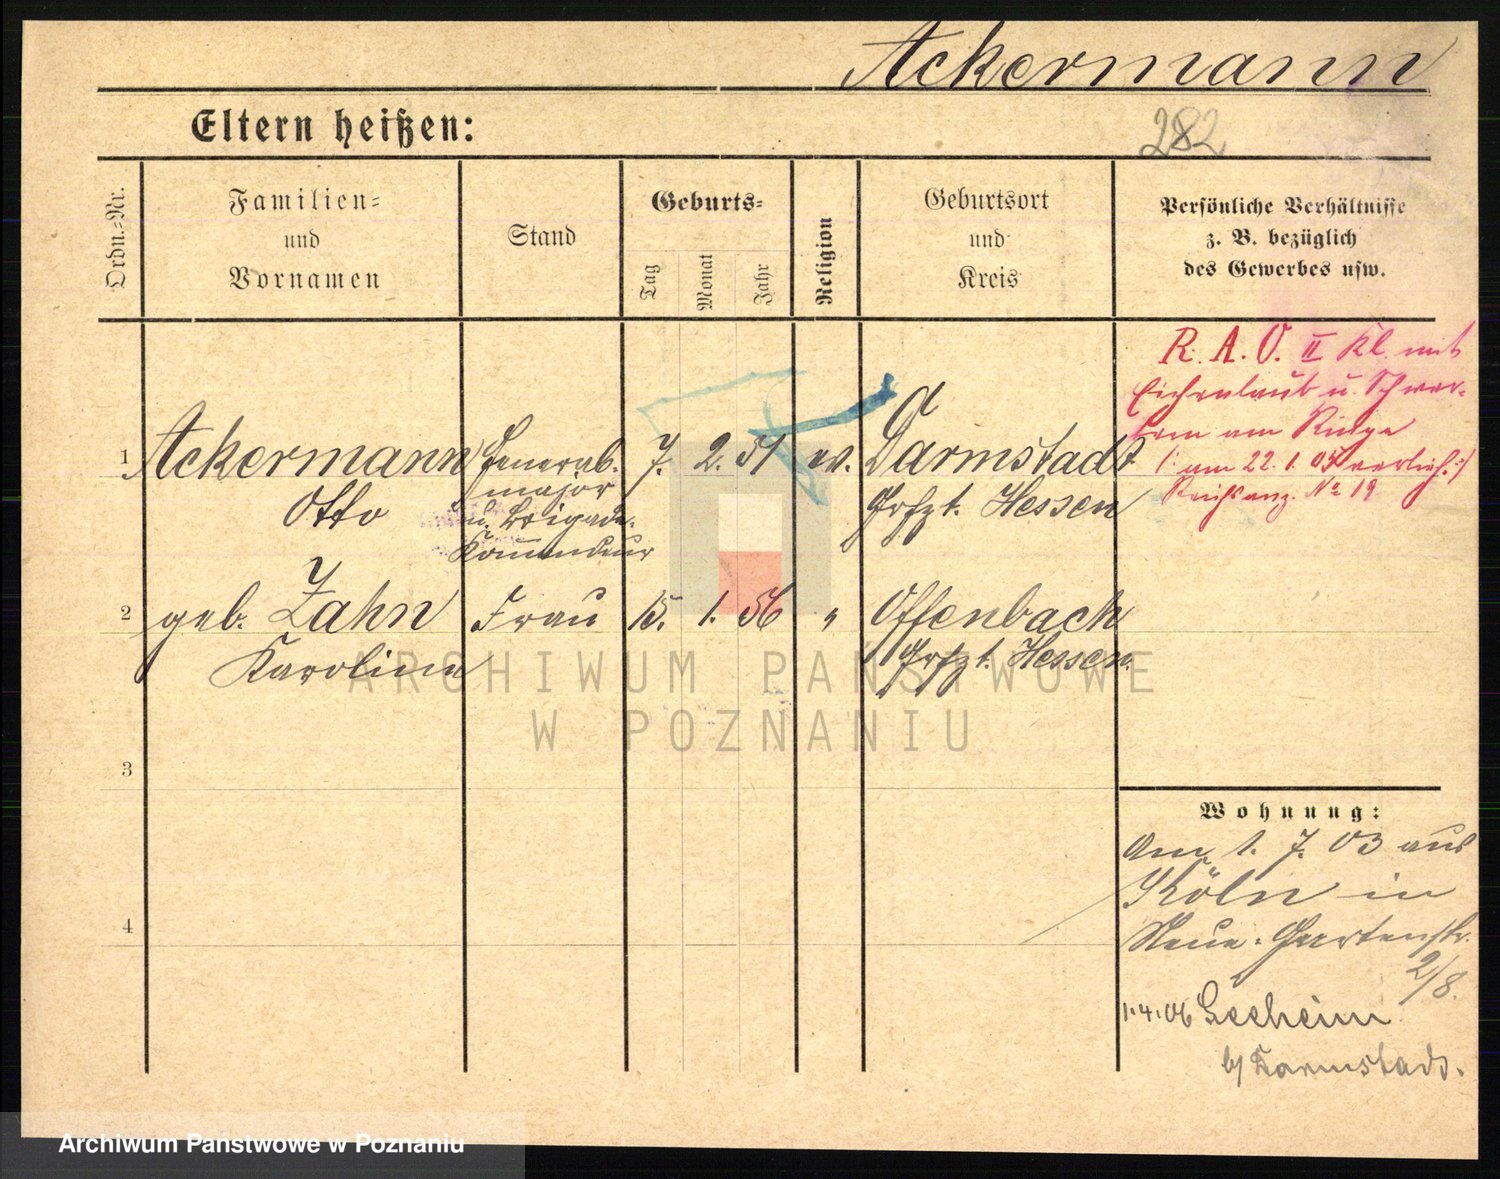 Ackermann
Eltern heißen:
282
Ordn.-Nr.
Familien-
und
Vornamen
Stand
Geburts-
Tag
Monat
Jahr
Religion
Geburtsort
und
Kreis
Persönliche Verhältnisse
z. B. bezüglich
des Gewerbes usw.
R. A. O. II Kl. mit
Eichenlaub u. Schwer-
tern am Ringe
/: am 22. 1. 05 verlieh. :/
Reichsanz. No 19
1 Ackermann General- 7. 2. 51 ev. Darmstadt
Otto major Grhzt. Hessen
u. Brigade-
Kommandeur
2 geb. Zahn Frau 15. 1. 56 " Offenbach
Karoline Grhzt. Hessen
3
4
Wohnung:
Am 1. 7. 03 aus
Köln in
Neue-Gartenstr.
2/8.
1.4.06 Seeheim
b/ Darmstadt.
ARCHIWUM PAŃSTWOWE
W POZNANIU
Archiwum Państwowe w Poznaniu